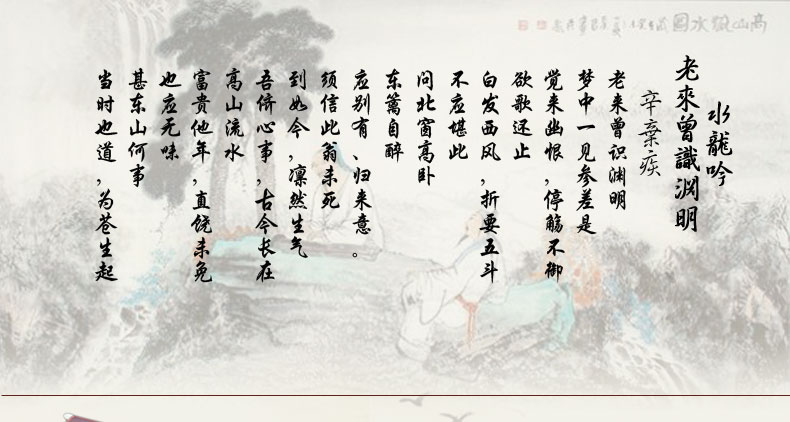 高山流水圖
水龍吟
老來曾識渊明
辛棄疾
老来曾识渊明
梦中一见参差是
觉来幽恨,停觞不御
欲歌还止
白发西风,折要五斗
不应堪此
问北窗高卧
东篱自醉
应别有、归来意。
须信此翁未死
到如今,凛然生气
吾侪心事,古今长在
高山流水
富贵他年,直饶未免
也应无味
甚东山何事
当时也道,为苍生起